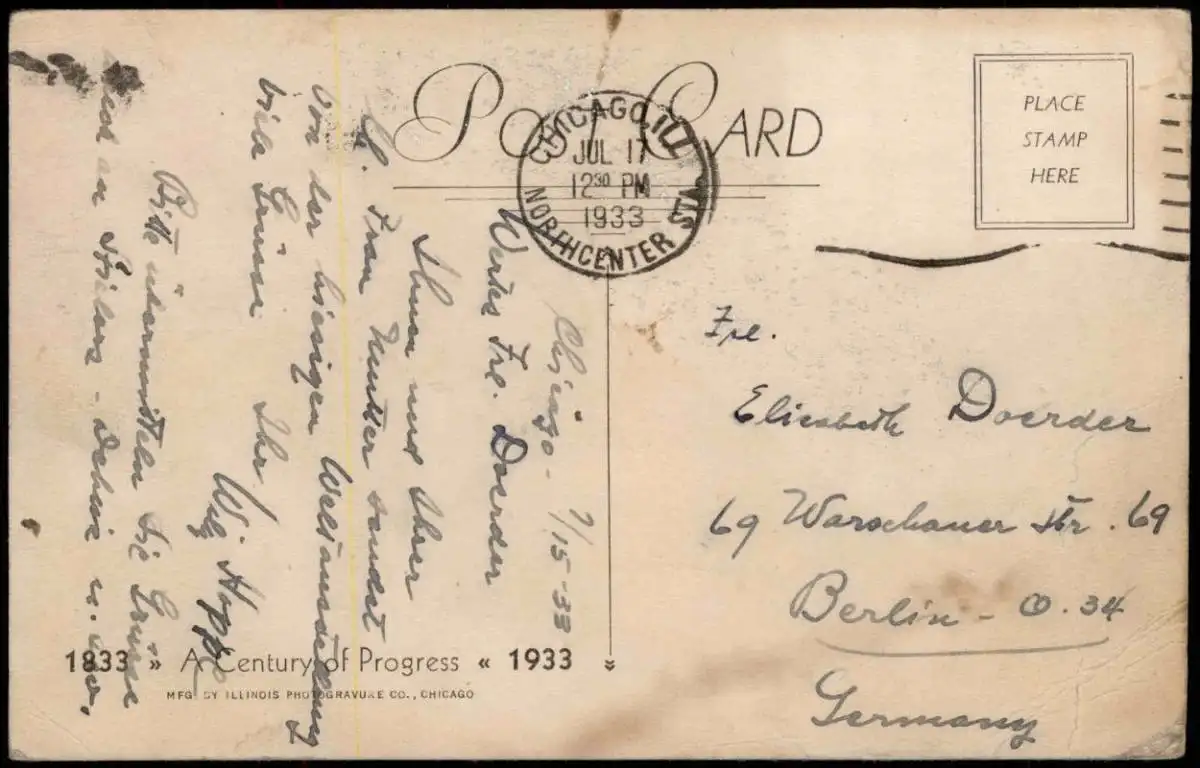 POST CARD
CHICAGO, ILL.
JUL 17
12 30 PM
1933
NORTHCENTER STA.
PLACE
STAMP
HERE
Chicago - 7/15-33
Wertes Frl. Doerder
Ihnen und Ihrer
Frau Mutter sendet
von der hiesigen Weltausstellung
viele Grüsse Ihr
Wlg Hoppe
Bitte übermitteln Sie Grüsse
auch an
Frl.
Elisabeth Doerder
69 Warschauer Str. 69
Berlin - O. 34
Germany
1833 » A Century of Progress « 1933
MFG. BY ILLINOIS PHOTOGRAVURE CO., CHICAGO